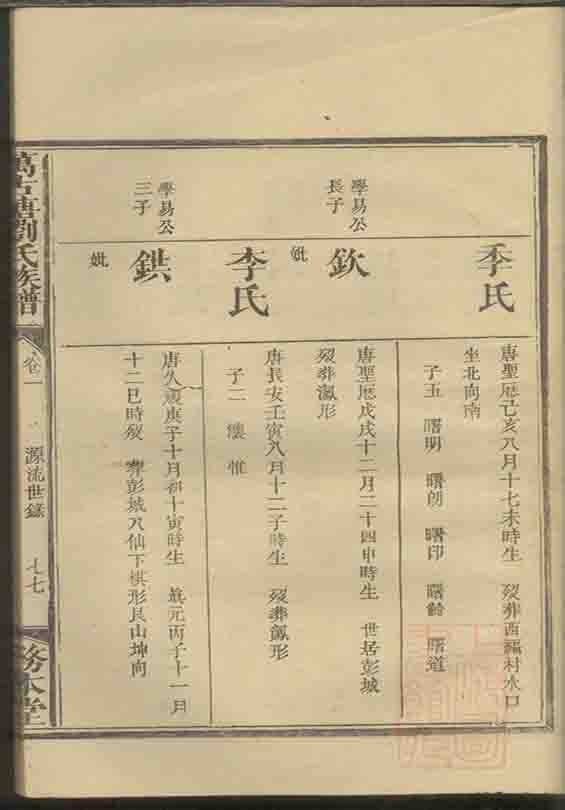 季氏
唐聖厯己亥八月十七未時生 歿葬西福村水口
坐北向南
子五 曙明 曙朗 曙印 曙齡 曙道
學易公
長子
欽
唐聖厯戊戌十二月二十四申時生 世居彭城
歿葬瀛形
妣
李氏
唐長安壬寅八月十二子時生 歿葬瀛形
子二 懷 惟
學易公
三子
鉷
唐久視庚子十月初十寅時生 眞元丙子十一月
十二巳時歿 葬彭城八仙下棋形艮山坤向
妣
萬古塘劉氏族譜
卷一
源流世錄
七七
務本堂